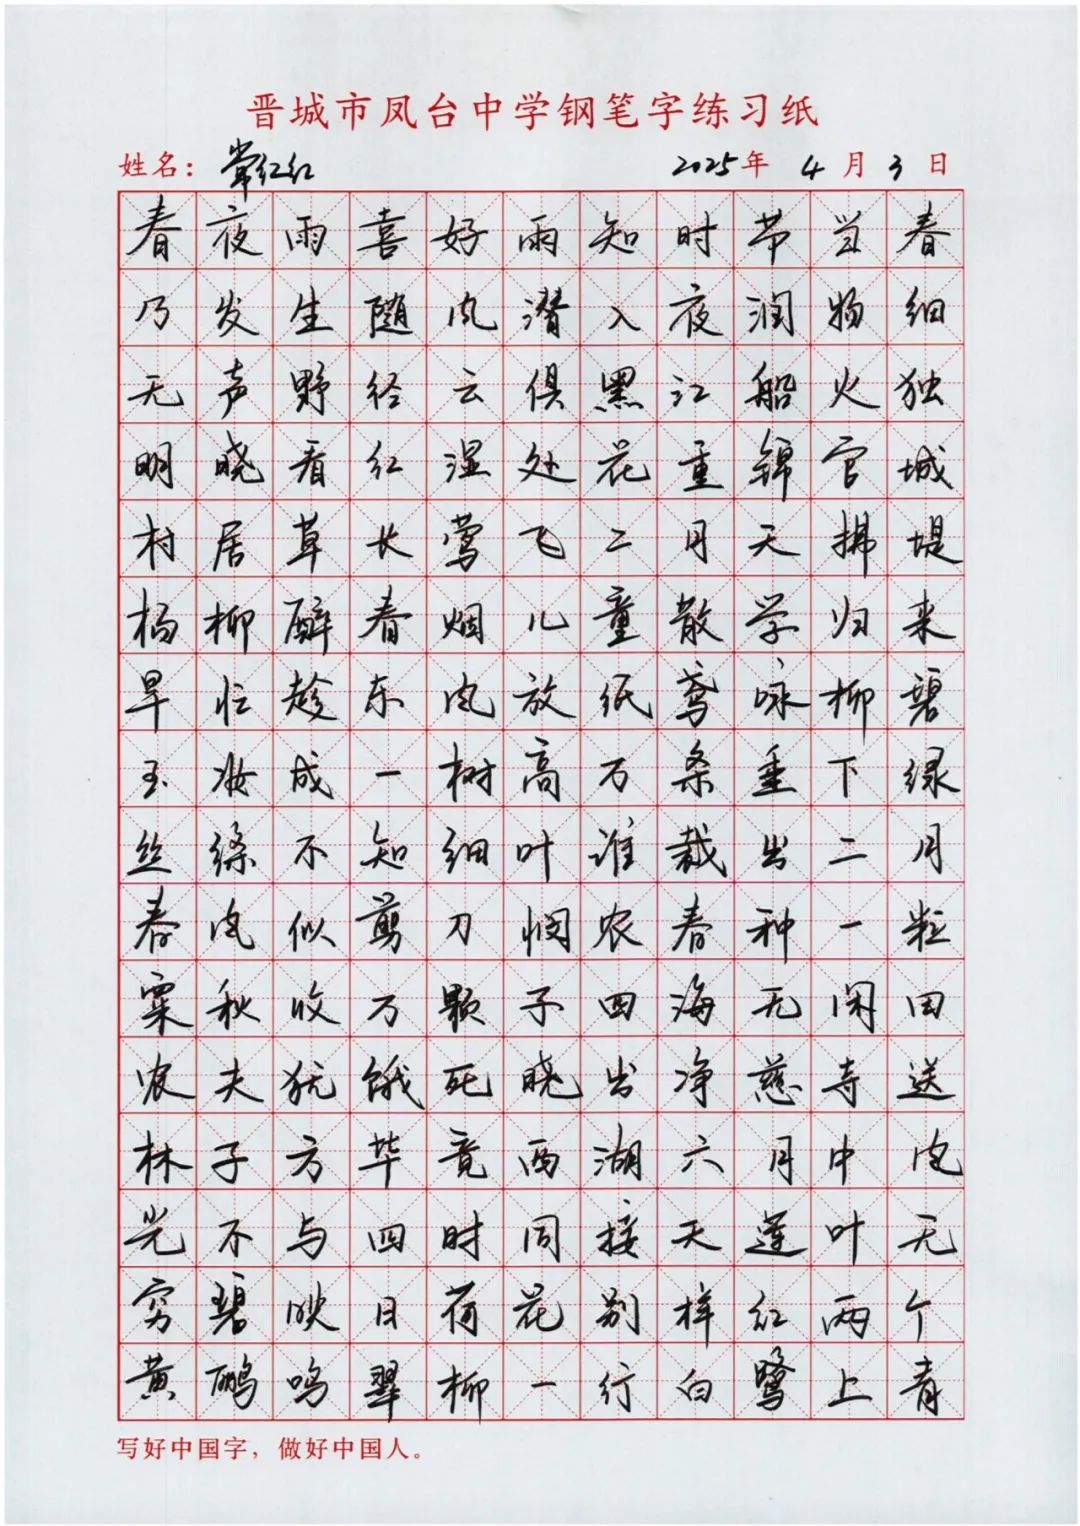 晋城市凤台中学钢笔字练习纸
姓名：常红红 2025年 4月 3日
春夜雨喜好雨知时节当春
乃发生随风潜入夜润物细
无声野径云俱黑江船火独
明晓看红湿处花重锦官城
村居草长莺飞二月天拂堤
杨柳醉春烟儿童散学归来
早忙趁东风放纸鸢咏柳碧
玉妆成一树高万条垂下绿
丝绦不知细叶谁裁出二月
春风似剪刀悯农春种一粒
粟秋收万颗子四海无闲田
农夫犹饿死晓出净慈寺送
林子方毕竟西湖六月中风
光不与四时同接天莲叶无
穷碧映日荷花别样红两个
黄鹂鸣翠柳一行白鹭上青
写好中国字，做好中国人。